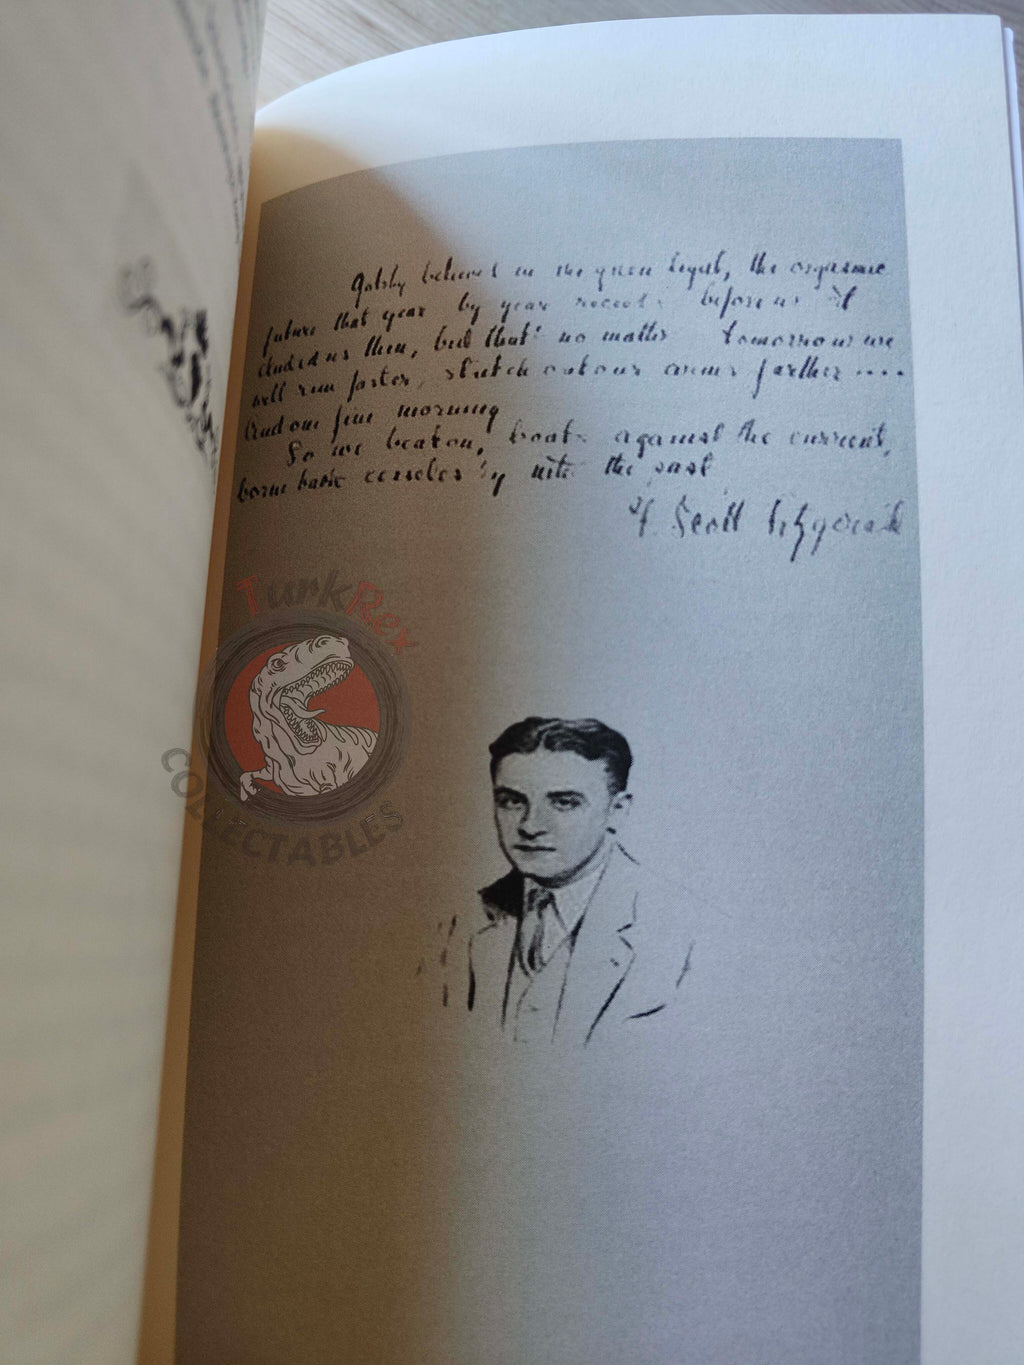 Gatsby believed in the green light, the orgasmic
future that year by year recedes before us It
eluded us then, but that's no matter tomorrow we
will run faster, stretch out our arms farther ....
And one fine morning
So we beat on, boats against the current,
borne back ceaselessly into the past
F. Scott Fitzgerald
TurkRex
COLLECTABLES